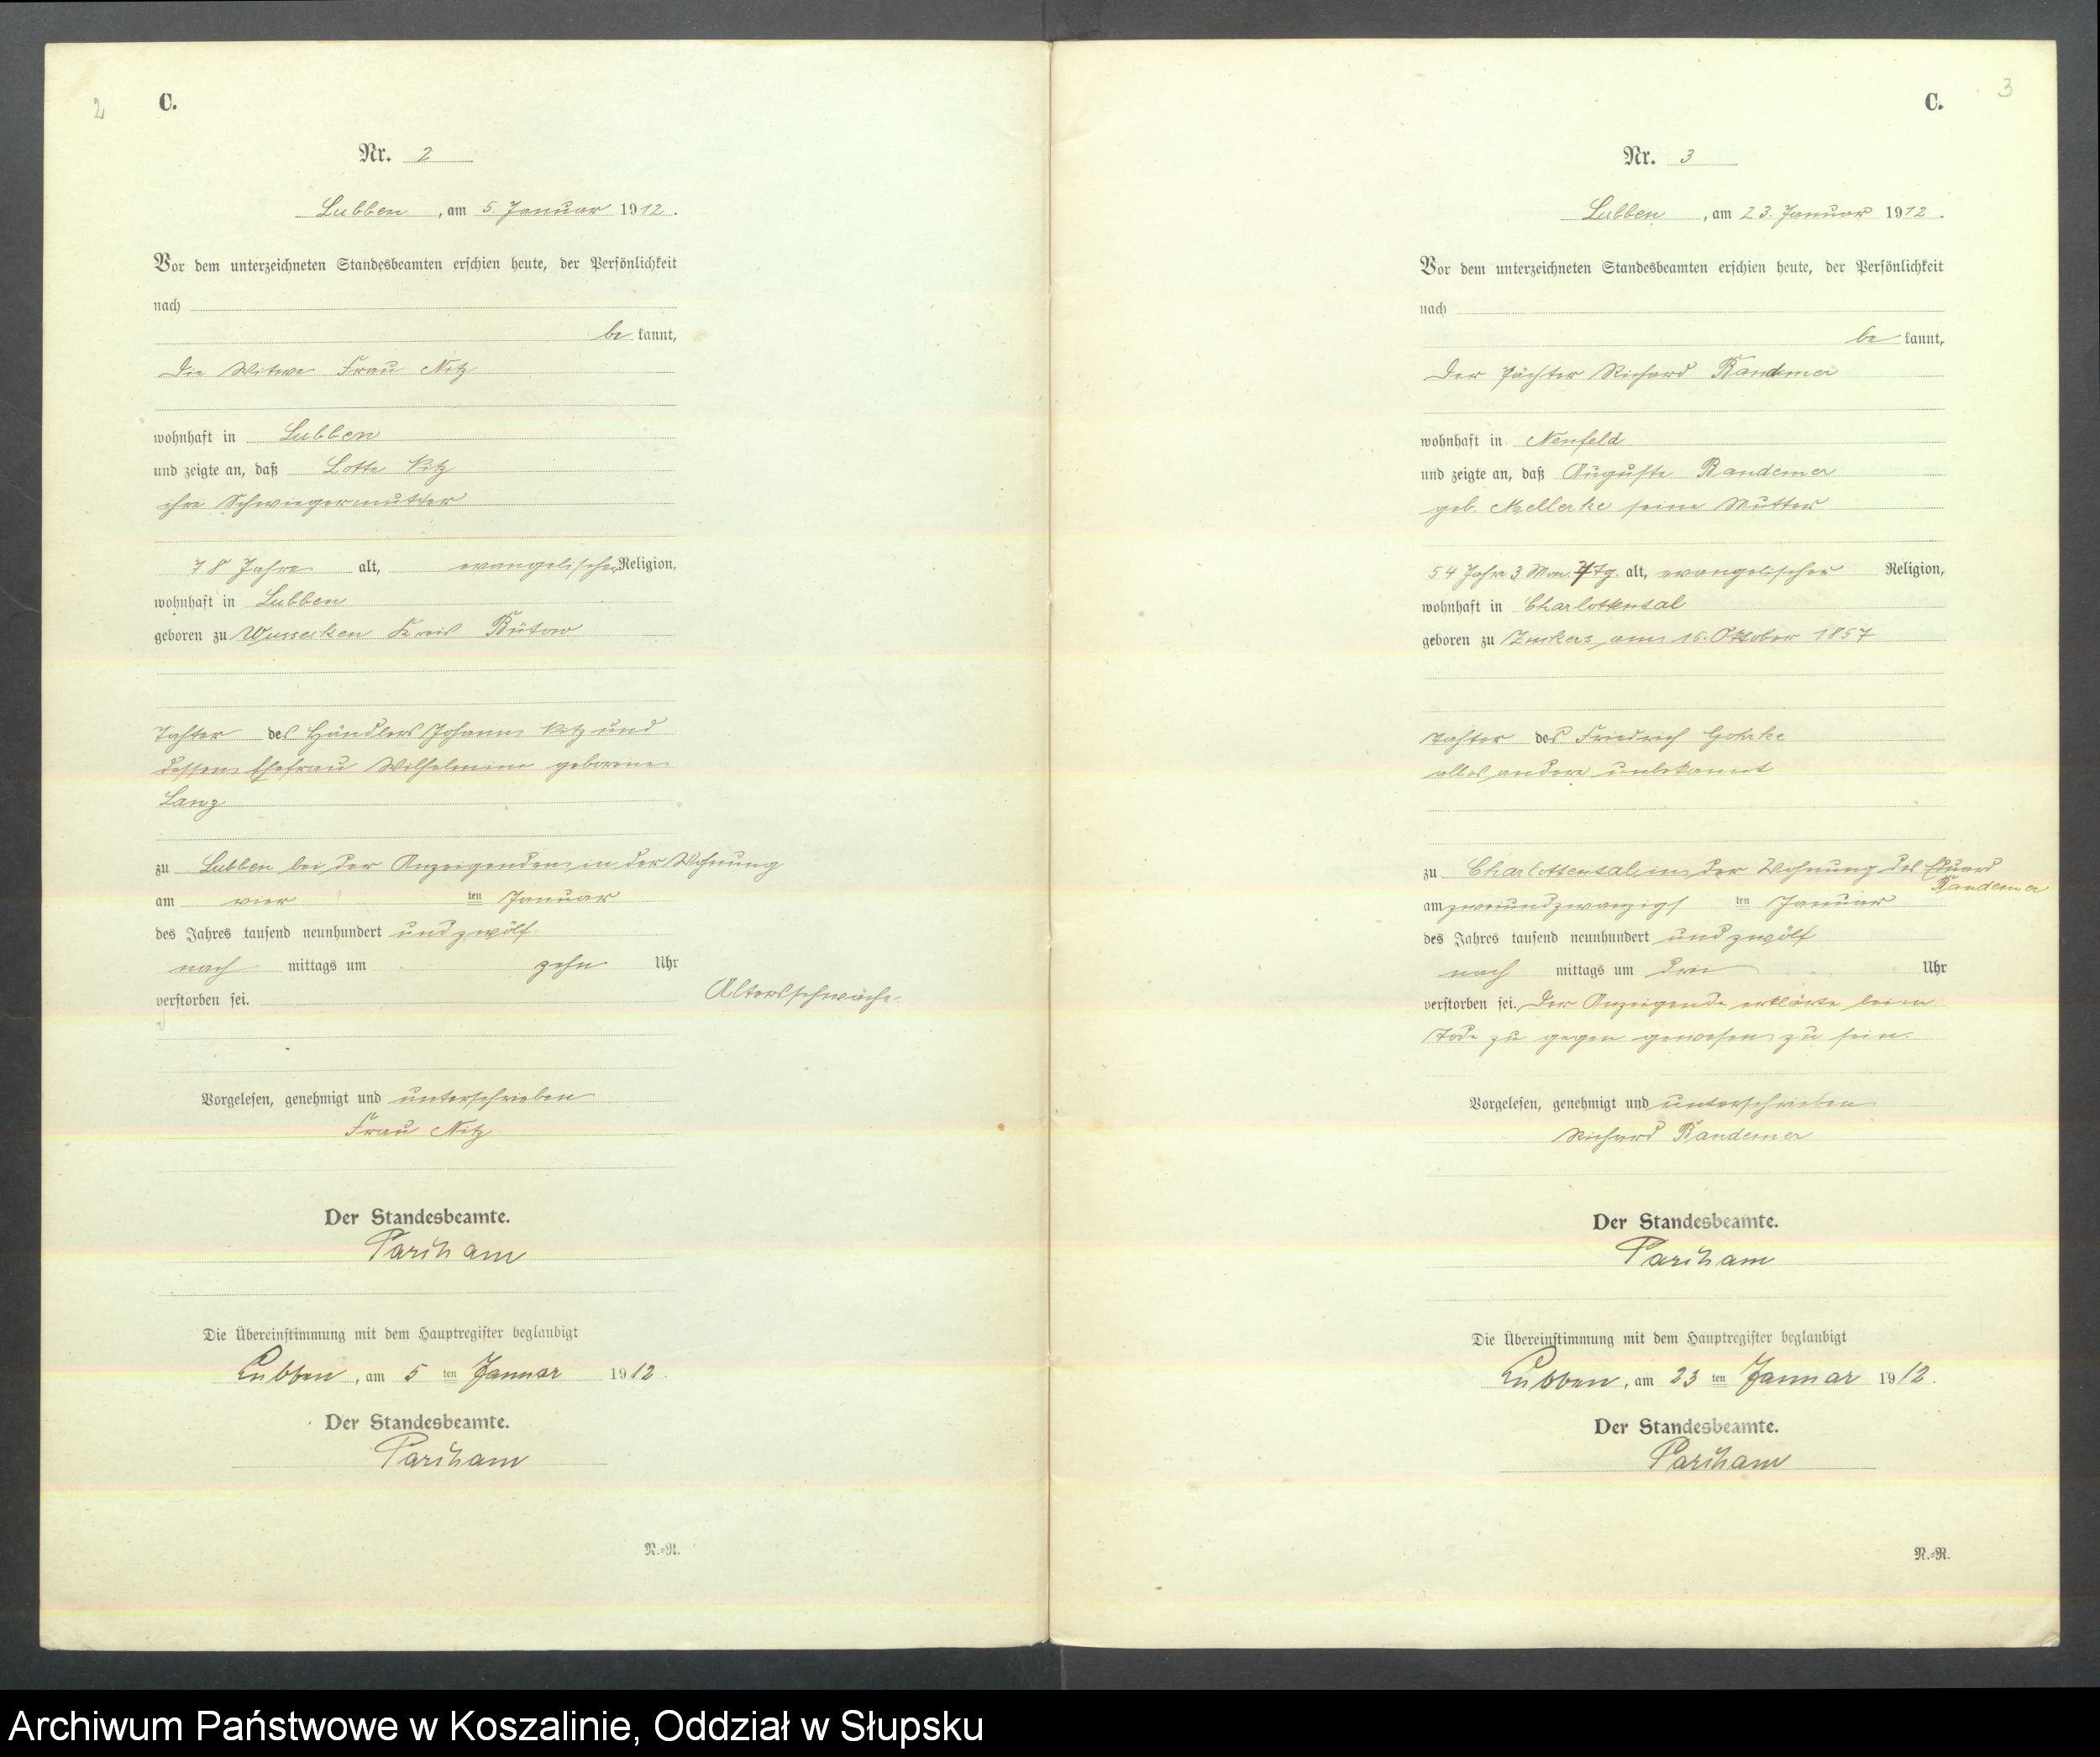 2
C.
Nr. 2
Lubben, am 5. Januar 1912.
Vor dem unterzeichneten Standesbeamten erschien heute, der Persönlichkeit
nach
be kannt,
die Witwe Frau Nitz
wohnhaft in Lubben
und zeigte an, daß Lotte Kitz
ihre Schwiegermutter
78 Jahre alt, evangelischer Religion,
wohnhaft in Lubben
geboren zu Wussecken Kreis Bütow
Tochter des Händlers Johann und
dessen Ehefrau Wilhelmine geborene
Lanz
zu Lubben bei der Anzeigenden in der Wohnung
am vier ten Januar
des Jahres tausend neunhundert und zwölf
nach mittags um zehn Uhr
verstorben sei.
Altersschwäche.
Vorgelesen, genehmigt und unterschrieben
Frau Nitz
Der Standesbeamte.
Parcham
Die Übereinstimmung mit dem Hauptregister beglaubigt
Lubben, am 5 ten Januar 1912.
Der Standesbeamte.
Parcham
N.=R.
3
C.
Nr. 3
Lubben, am 23. Januar 1912.
Vor dem unterzeichneten Standesbeamten erschien heute, der Persönlichkeit
nach
be kannt,
der Pächter Richard Bandemer
wohnhaft in Neufeld
und zeigte an, daß Auguste Bandemer
geb. seine Mutter
54 Jahre 3 Mon. 7 Tg. alt, evangelischer Religion,
wohnhaft in Charlottental
geboren zu Zuckers am 15. Oktober 1857
Tochter des Friedrich Gohrke
alles andere unbekannt
zu Charlottental in der Wohnung des Eduard
Bandemer
am zweiundzwanzigsten Januar
des Jahres tausend neunhundert und zwölf
nach mittags um drei Uhr
verstorben sei. Der Anzeigende erklärte beim
Tode zu gegen gewesen zu sein.
Vorgelesen, genehmigt und unterschrieben
Richard Bandemer
Der Standesbeamte.
Parcham
Die Übereinstimmung mit dem Hauptregister beglaubigt
Lubben, am 23 ten Januar 1912.
Der Standesbeamte.
Parcham
N.=R.
Archiwum Państwowe w Koszalinie, Oddział w Słupsku